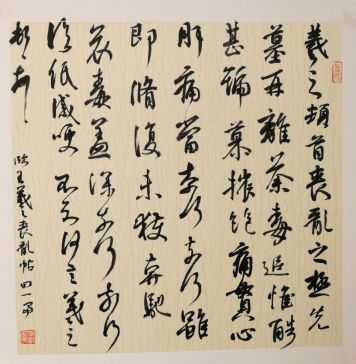 羲之頓首喪亂之極先
墓再離荼毒追惟酷
甚號慕摧絕痛貫心
肝痛當奈何奈何雖
即脩復未獲奔馳
哀毒益深奈何奈何
臨紙感哽不知何言羲之
頓首
臨王羲之喪亂帖 田一